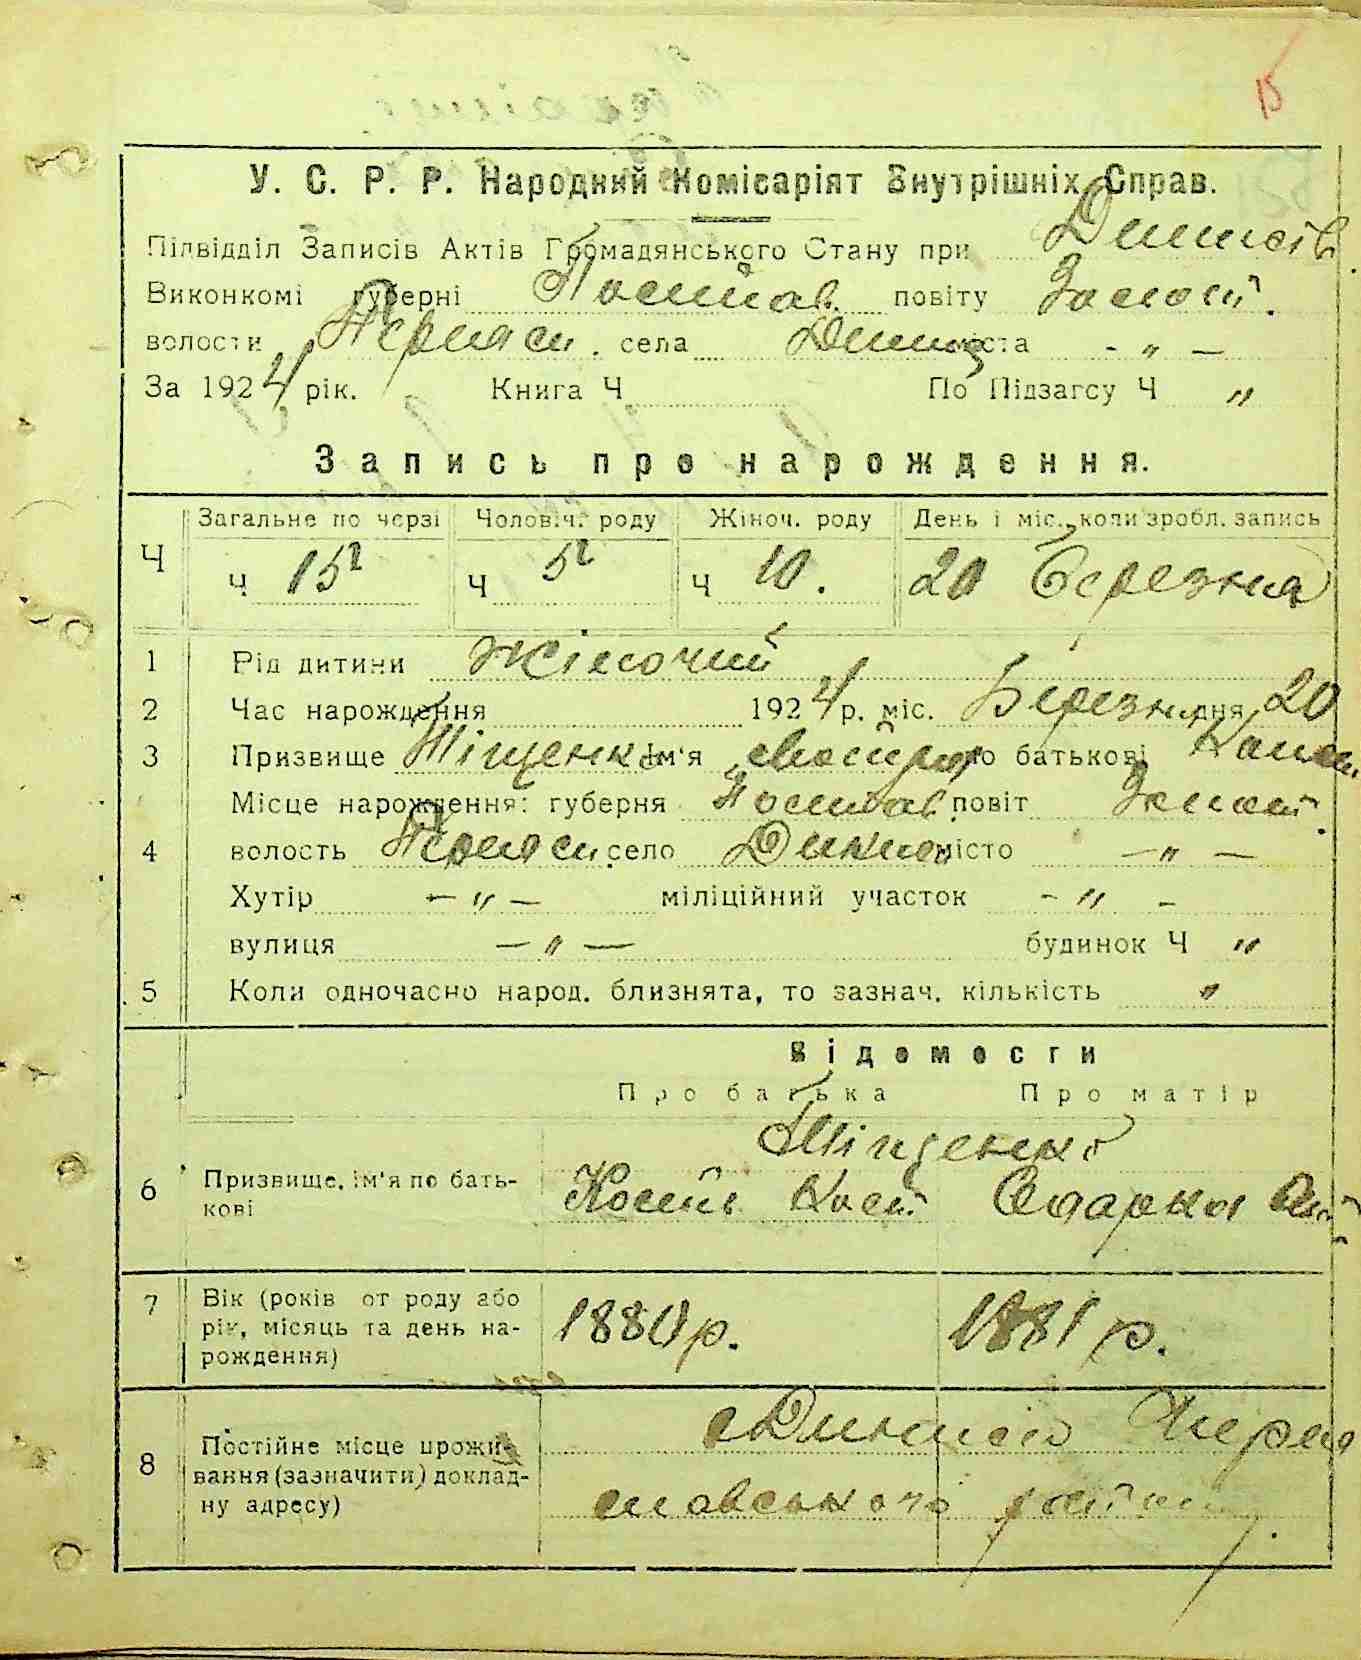 15
У. С. Р. Р. Народний Комісаріят Внутрішніх Справ.
Підвідділ Записів Актів Громадянського Стану при
Виконкомі губерні Полтав. повіту Золот.
волости села міста - „ -
За 1924 рік. Книга Ч По Підзагсу Ч „
Запись про нарождення.
Загальне по черзі Чоловіч. роду Жіноч. роду День і міс., коли зробл. запись
Ч Ч 15 Ч 5 Ч 10. 20 Березня
1 Рід дитини Жіночий
2 Час нарождення 1924 р. міс. Березня дня 20
3 Призвище Тіщенко Ім'я по батькові
Місце нарождення: губерня Полтав. повіт Золот.
4 волость село місто - „ -
Хутір - „ - міліційний участок - „ -
вулиця - „ - будинок Ч „
5 Коли одночасно народ. близнята, то зазнач. кількість „
Відомости
Про батька Про матір
Тіщенко
6 Призвище, ім'я по бать-
кові Кость Кост. Одарка
7 Вік (років от роду або
рік, місяць та день на-
рождення) 1880 р. 1881 р.
8 Постійне місце прожи-
вання (зазначити) доклад-
ну адресу)